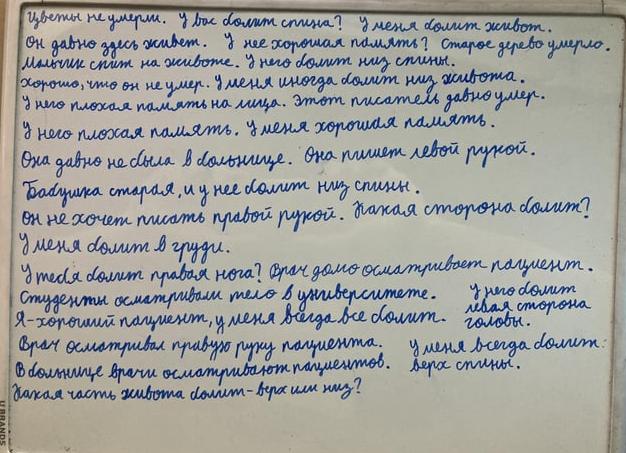 Цветы не умерли. У вас болит спина? У меня болит живот.
Он давно здесь живет. У нее хорошая память? Старое дерево умерло.
Мальчик спит на животе. У него болит низ спины.
Хорошо, что он не умер. У меня иногда болит низ живота.
У него плохая память на лица. Этот писатель давно умер.
У него плохая память. У меня хорошая память.
Она давно не была в больнице. Она пишет левой рукой.
Бабушка старая, и у нее болит низ спины.
Он не хочет писать правой рукой. Какая сторона болит?
У меня болит в груди.
У тебя болит правая нога? Врач домо осматривает пациент.
Студенты осматривали тело в университете.
У него болит
левая сторона
головы.
Я - хороший пациент, у меня всегда все болит.
Врач осматривал правую руку пациента.
У меня всегда болит:
верх спины.
В больнице врачи осматривают пациентов.
Какая часть живота болит - верх или низ?
U BRANDS